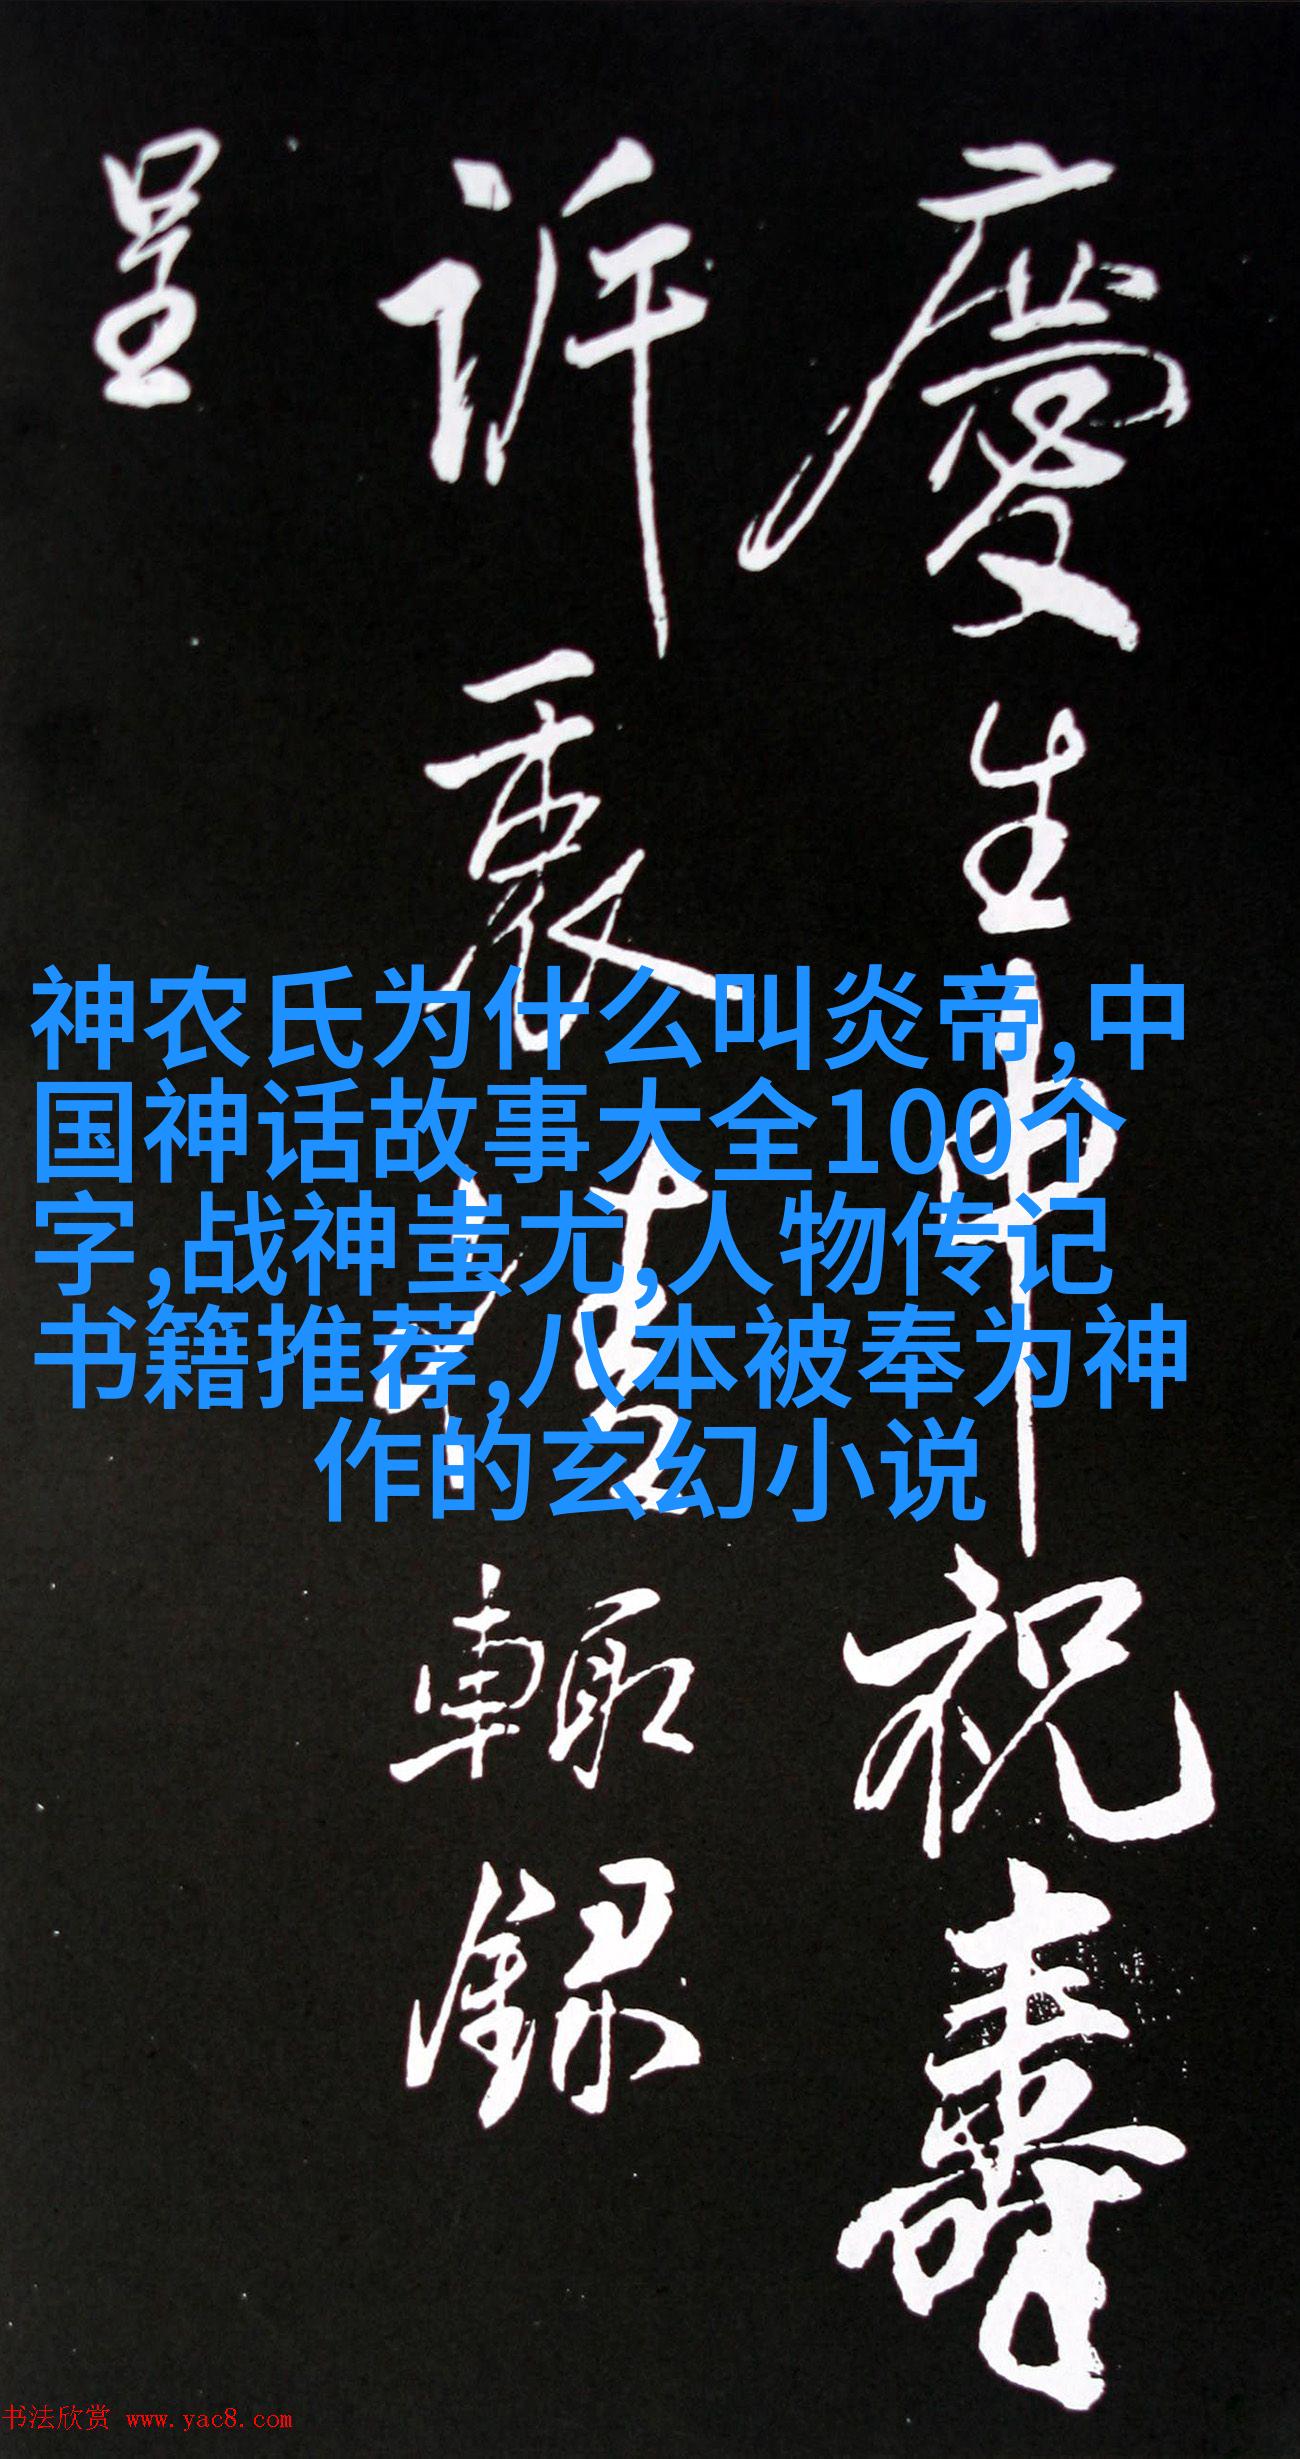 慶生申祝壽
訴衷情輒錄
呈
神农氏为什么叫炎帝,中
国神话故事大全100个
字,战神蚩尤,人物传记
书籍推荐,八本被奉为神
作的玄幻小说
书法欣赏 www.yac8.com